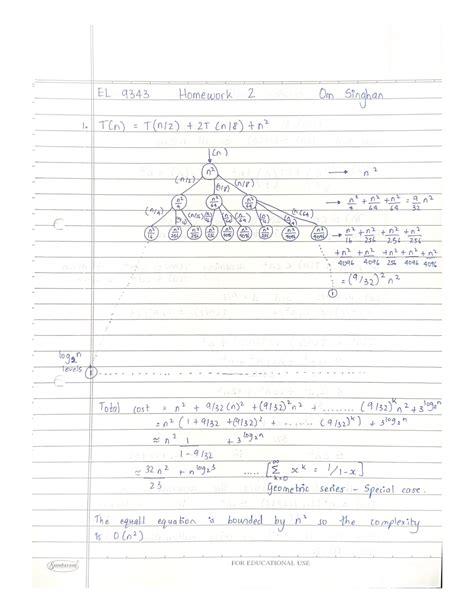 EL 9343 Homework 2 Om Singhan
1. T(n) = T(n/2) + 2T(n/8) + n²
(n)
n² → n²
(n/2) (n/8) (n/8)
n²/4 n²/64 n²/64 → n²/4 + n²/64 + n²/64 = 9/32 n²
(n/4) (n/64)
n²/16 n²/256 n²/256 n²/256 n²/4096 n²/4096 n²/256 n²/4096 n²/4096 → n²/16 + n²/256 + n²/256 + n²/256
+ n²/4096 + n²/4096 + n²/256 + n²/4096 + n²/4096
= (9/32)² n²
1
log₂n
levels 1
Total cost = n² + 9/32(n)² + (9/32)² n² + ........ (9/32)ᵏ n² + 3^log₂n
= n² (1 + 9/32 + (9/32)² + ....... (9/32)ᵏ) + 3^log₂n
≈ n² 1/(1 - 9/32) + 3^log₂n
≈ 32n²/23 + n^log₂3 ..... [∞Σk=0 xᵏ = 1/1-x]
Geometric series - Special case.
The equall equation is bounded by n² so the complexity
is O(n²)
Sundaram
FOR EDUCATIONAL USE